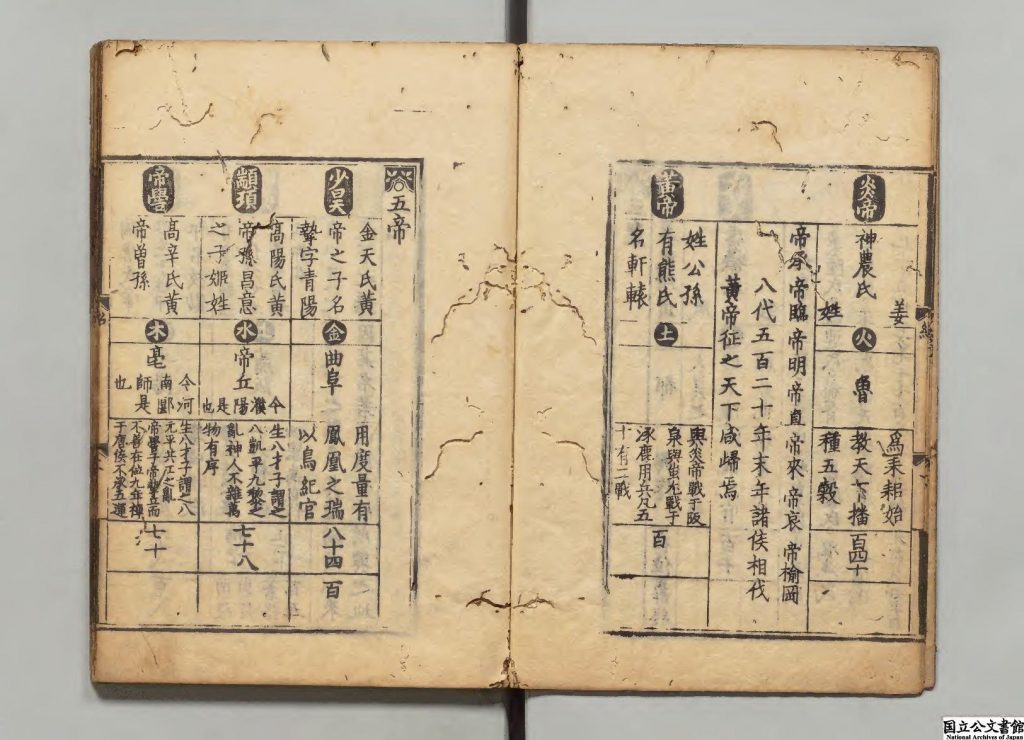 炎帝
神農氏
姜
姓
火
魯
爲耒耜始
教天下播
種五穀
百四十
帝承帝臨帝明帝直帝來帝哀帝榆岡
八代五百二十年末年諸侯相伐
黃帝征之天下咸歸焉
黃帝
姓公孫
有熊氏
名軒轅
土
與炎帝戰于阪
泉與蚩尤戰于
涿鹿用兵凡五
十有二戰
百
五帝
少昊
金天氏黃
帝之子名
摯字青陽
金
曲阜
用度量有
鳳凰之瑞
以鳥紀官
八十四
百
顓頊
高陽氏黃
帝孫昌意
之子姬姓
水
帝丘
今濮陽是也
生八才子謂之
八凱平九黎之
亂神人不雜萬
物有序
七十八
帝嚳
高辛氏黃
帝曾孫
木
亳
今河
南郾
師是
也
生八才子謂之八
元平共工之亂
帝嚳子帝摯立而
不善在位九年禪
于唐侯不承五運
七十
国立公文書館
National Archives of Japan